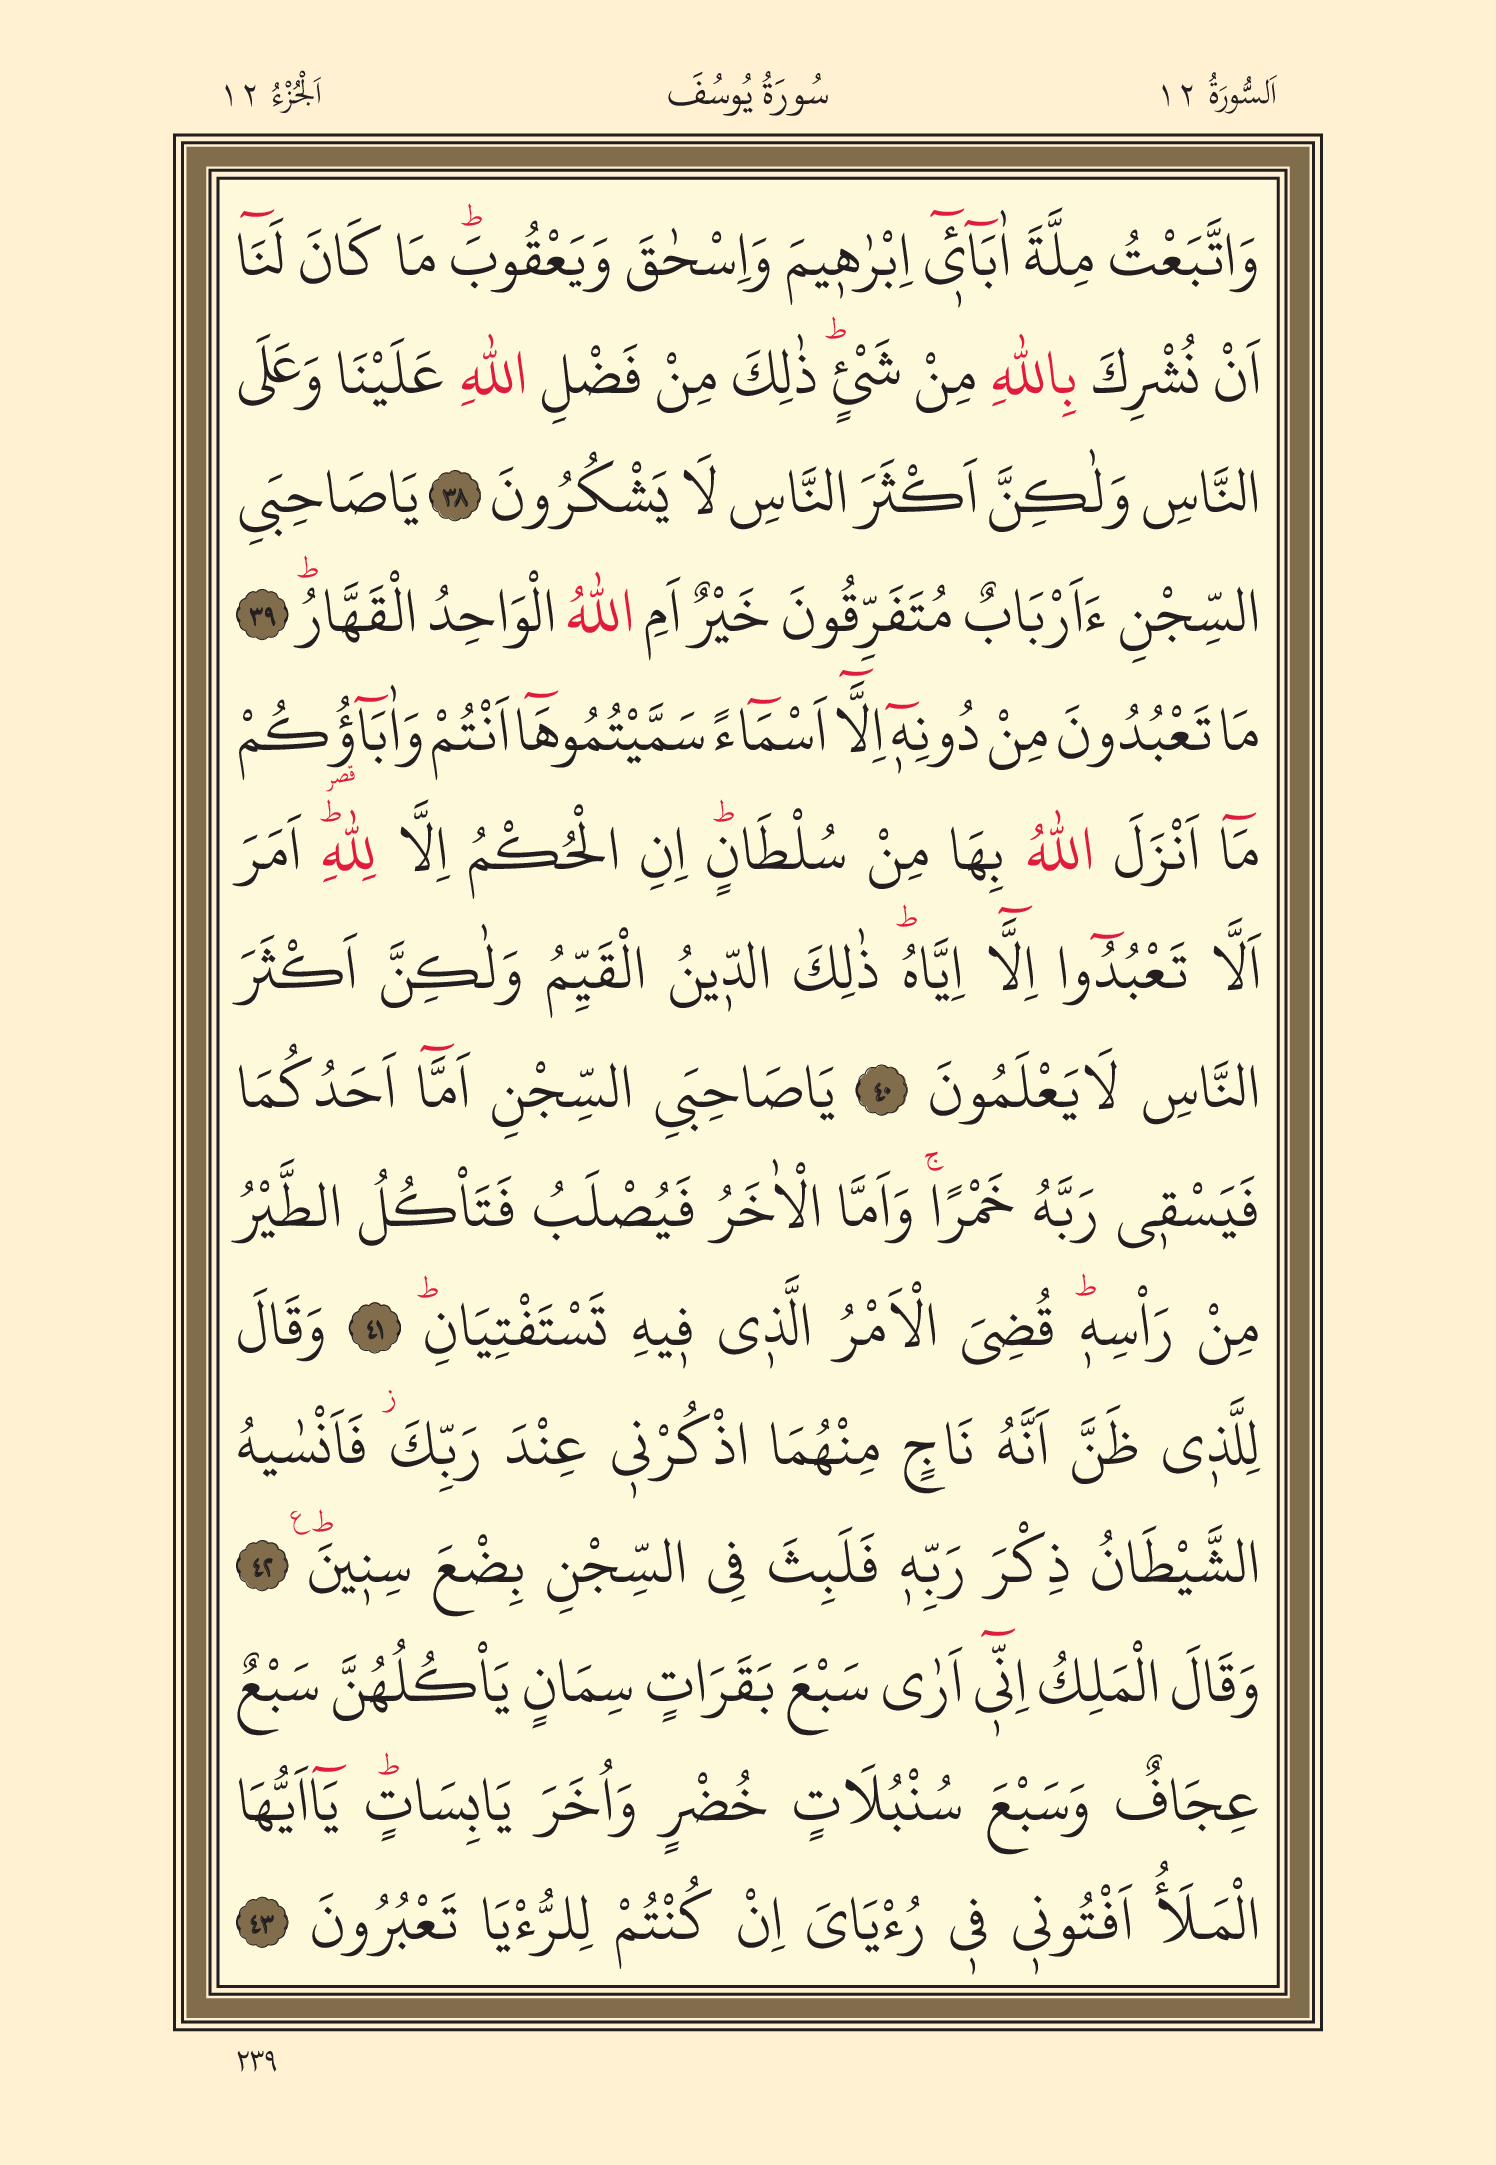 اَلسُّورَةُ ١٢ سُورَةُ يُوسُفَ اَلْجُزْءُ ١٢
وَاتَّبَعْتُ مِلَّةَ اٰبَٓاءٖٓي اِبْرٰهٖيمَ وَاِسْحٰقَ وَيَعْقُوبَؕ مَا كَانَ لَنَٓا
اَنْ نُشْرِكَ بِاللّٰهِ مِنْ شَيْءٍؕ ذٰلِكَ مِنْ فَضْلِ اللّٰهِ عَلَيْنَا وَعَلَى
النَّاسِ وَلٰكِنَّ اَكْثَرَ النَّاسِ لَا يَشْكُرُونَ ٣٨ يَاصَاحِبَيِ
السِّجْنِ ءَاَرْبَابٌ مُتَفَرِّقُونَ خَيْرٌ اَمِ اللّٰهُ الْوَاحِدُ الْقَهَّارُؕ ٣٩
مَا تَعْبُدُونَ مِنْ دُونِهٖٓ اِلَّٓا اَسْمَٓاءً سَمَّيْتُمُوهَٓا اَنْتُمْ وَاٰبَٓاؤُكُمْ
مَٓا اَنْزَلَ اللّٰهُ بِهَا مِنْ سُلْطَانٍؕ اِنِ الْحُكْمُ اِلَّا لِلّٰهِؕ قصر اَمَرَ
اَلَّا تَعْبُدُٓوا اِلَّٓا اِيَّاهُؕ ذٰلِكَ الدّٖينُ الْقَيِّمُ وَلٰكِنَّ اَكْثَرَ
النَّاسِ لَايَعْلَمُونَ ٤٠ يَاصَاحِبَيِ السِّجْنِ اَمَّٓا اَحَدُكُمَا
فَيَسْقٖى رَبَّهُ خَمْرًاۚ وَاَمَّا الْاٰخَرُ فَيُصْلَبُ فَتَاْكُلُ الطَّيْرُ
مِنْ رَاْسِهٖؕ قُضِىَ الْاَمْرُ الَّذٖى فٖيهِ تَسْتَفْتِيَانِؕ ٤١ وَقَالَ
لِلَّذٖى ظَنَّ اَنَّهُ نَاجٍ مِنْهُمَا اذْكُرْنٖى عِنْدَ رَبِّكَؗ فَاَنْسٰيهُ
الشَّيْطَانُ ذِكْرَ رَبِّهٖ فَلَبِثَ فِى السِّجْنِ بِضْعَ سِنٖينَ ط ع ٤٢
وَقَالَ الْمَلِكُ اِنّٖٓى اَرٰى سَبْعَ بَقَرَاتٍ سِمَانٍ يَاْكُلُهُنَّ سَبْعٌ
عِجَافٌ وَسَبْعَ سُنْبُلَاتٍ خُضْرٍ وَاُخَرَ يَابِسَاتٍؕ يَٓااَيُّهَا
الْمَلَأُ اَفْتُونٖى فٖى رُءْيَاىَ اِنْ كُنْتُمْ لِلرُّءْيَا تَعْبُرُونَ ٤٣
٢٣٩